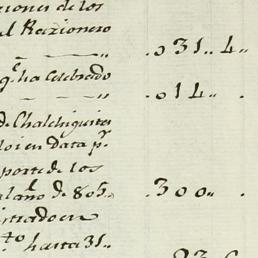 ziones de los
al Razionero
.031..4..
q.e ha celebrado
.014..
de Chalchiguites
doi en Data p.r
porte de los
al año de 805. .300..
istrado en
to hasta 31..